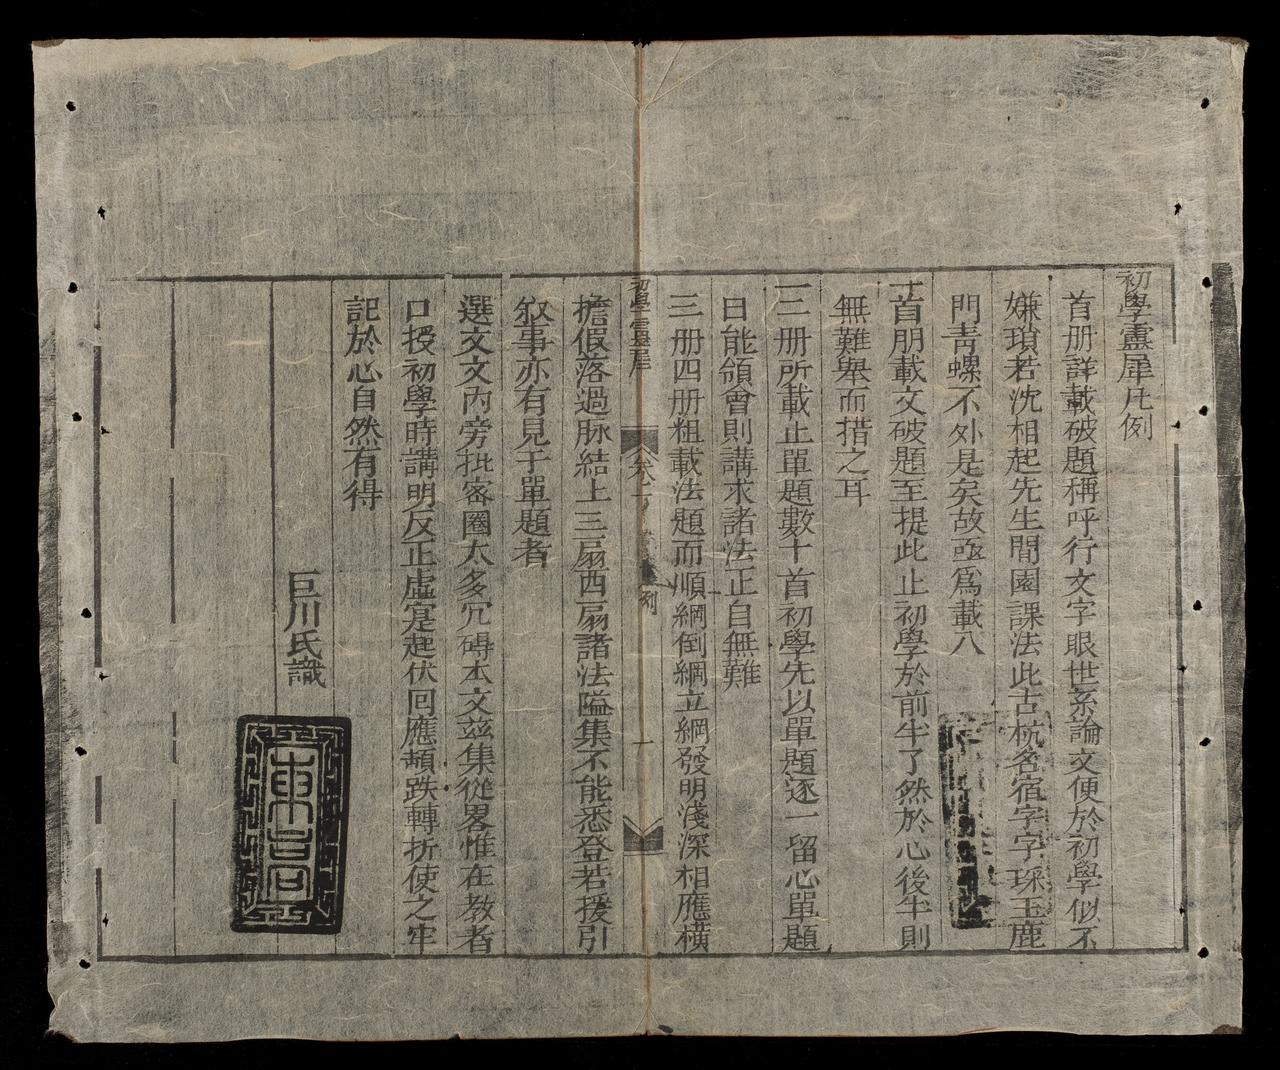 初學靈犀凡例
首册詳載破題稱呼行文字眼世系論文便於初學似不
嫌瑣若沈相起先生閒園課法此古杭名宿字字琛玉鹿
門青螺不外是矣故亟爲載入
首册載文破題至提此止初學於前半了然於心後半則
無難舉而措之耳
二册所載止單題數十首初學先以單題逐一留心單題
日能領會則講求諸法正自無難
三册四册粗載法題而順綱倒綱立綱發明淺深相應橫
初學靈犀
例
一
擔假落過脉結上三扇四扇諸法隘集不能悉登若援引
叙事亦有見于單題者
選文文內旁批密圈太多冗碍本文茲集從畧惟在教者
口授初學時講明反正虛寔起伏回應頓跌轉折使之牢
記於心自然有得
巨川氏識